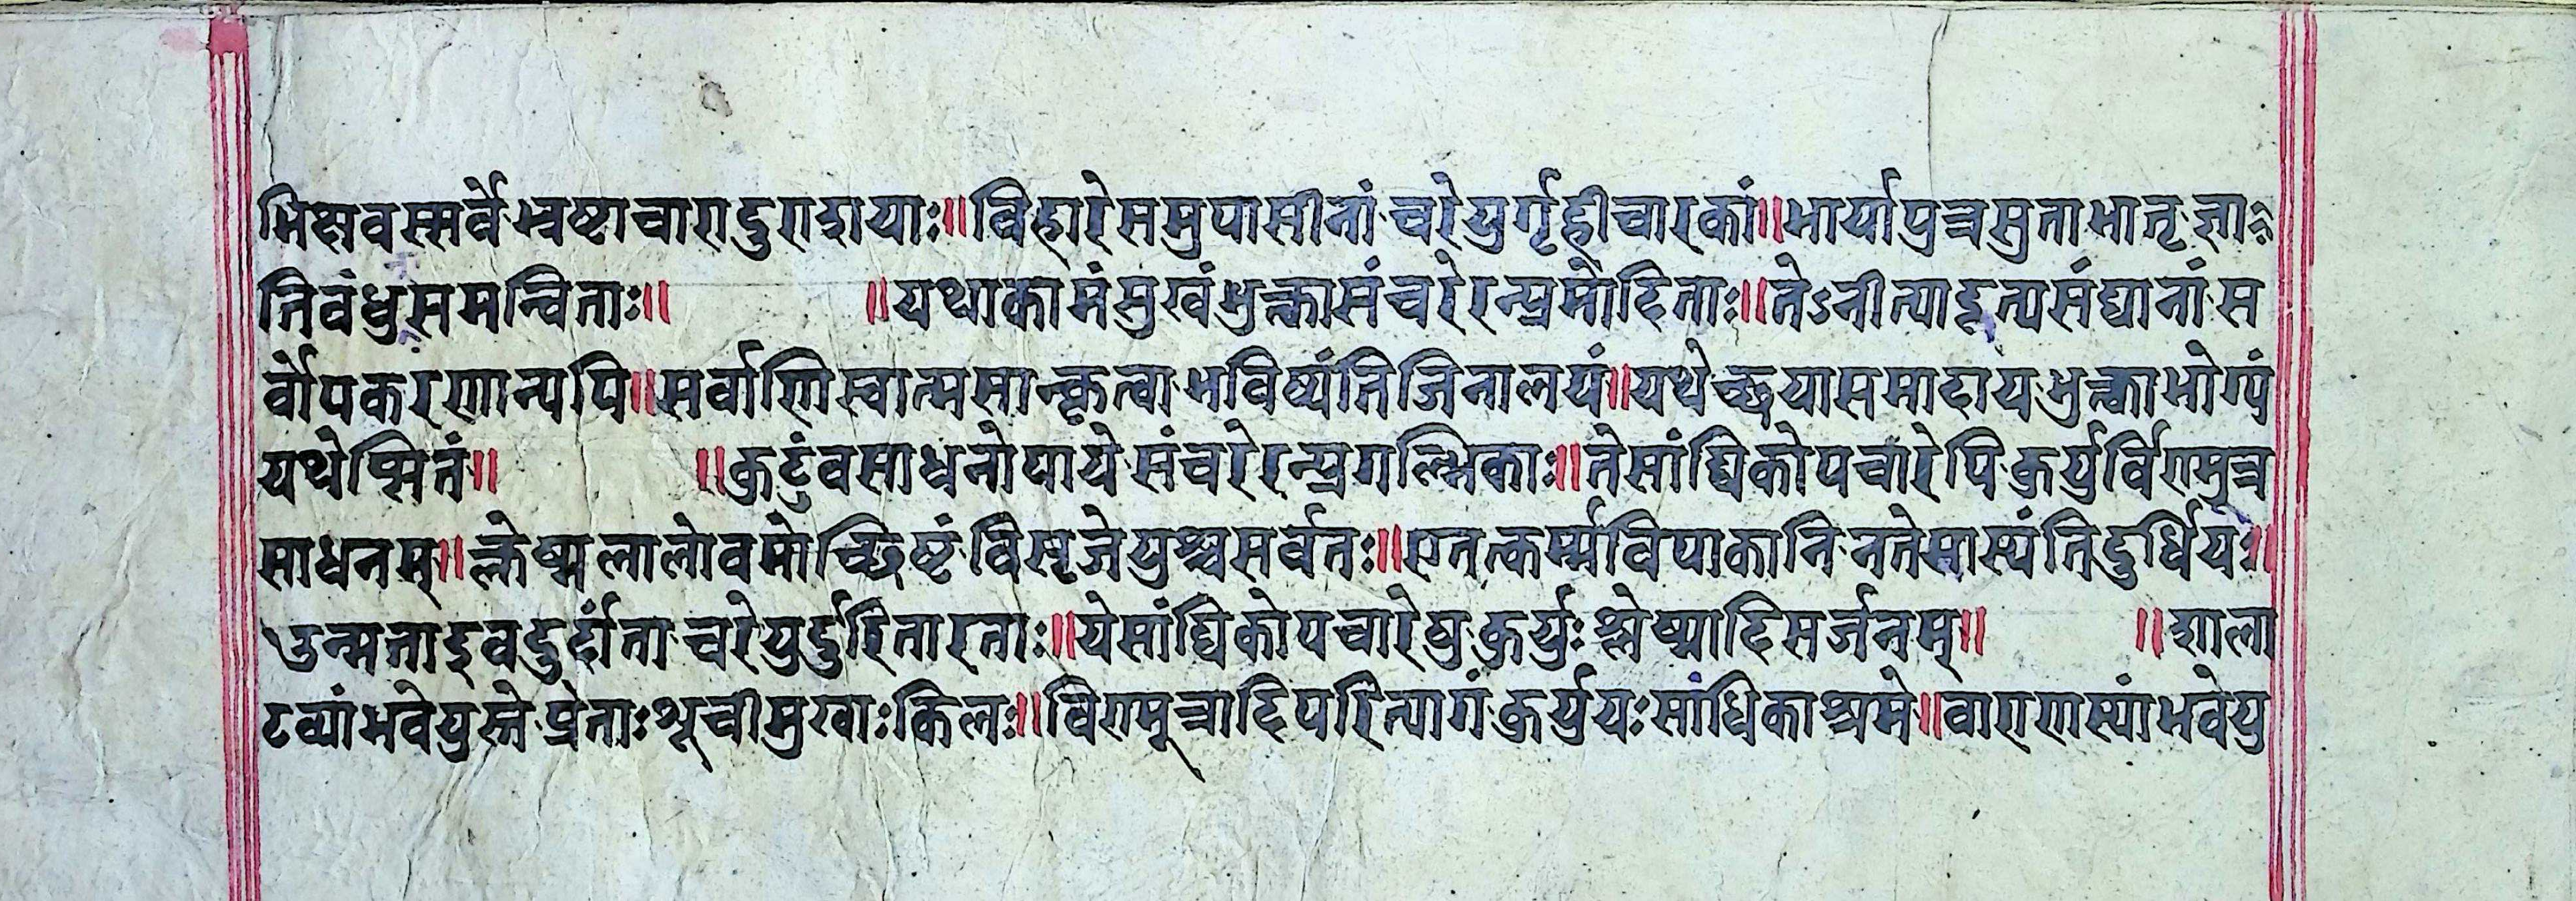 भिक्षवस्सर्वेभ्रष्टाचारादुराशयाः॥विहारेसमुपासीनांचरेयुर्गृहीचारकां॥भार्यापुत्रसुताभातृज्ञा
तिवंधुसमन्विताः॥ ॥यथाकामंसुखंभुक्त्वासंचरेरन्प्रमोदिताः॥तेऽनीत्यादृत्यसंद्यानांस
र्वोपकरणान्यपि॥सर्वाणिस्वात्मसात्कृत्वाभविष्यंतिजिनालयं॥यथेच्छयासमादायभुक्त्वाभोग्यं
यथेप्सितं॥ ॥कुटुंवसाधनोपायेसंचरेरन्प्रगल्भिकाः॥तेसांघिकोपचारेपिकुर्युर्विणमूत्र
साधनम्॥ल्केष्मलालोवमोच्छिष्टंविसृजेयुश्चसर्वतः॥एतत्कर्म्मविपाकानिनतेसास्यंतिदुर्धियः॥
उन्मत्ताइवदुर्दांताचरेयुर्दुरितारताः॥येसांघिकोपचारेषुकुर्युःश्लेष्मादिसर्जनम्॥ ॥शाला
टव्यांभवेयुस्तेप्रेताःशूचीमुखाःकिलः॥विणमूत्रादिपरित्यागंकुर्युयःसांधिकाश्रमे॥वाराणस्यांभवेयु